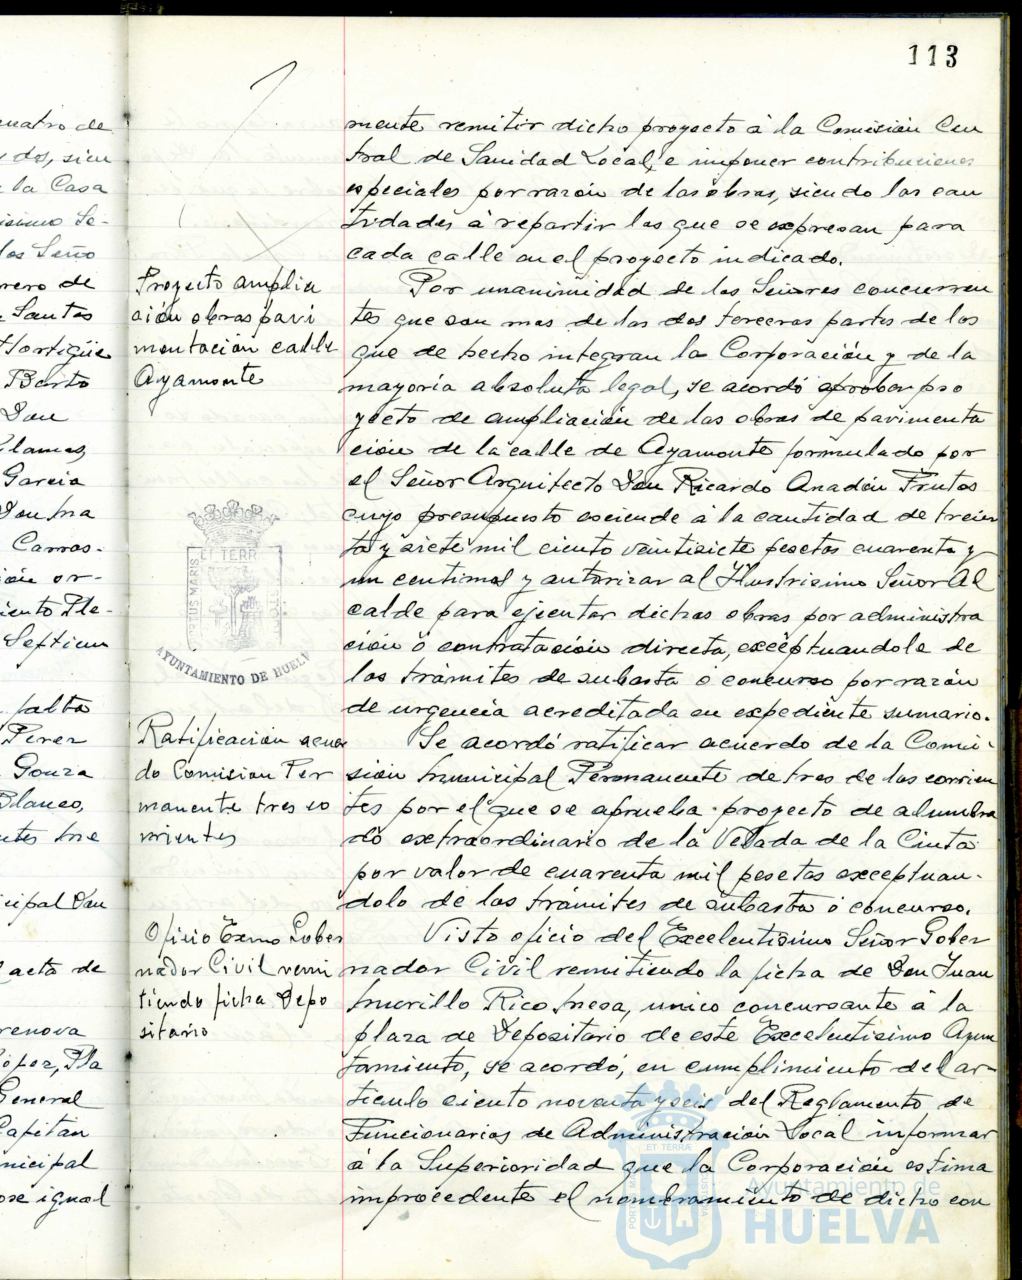 113
cuatro de
y dos, sien
la Casa
Se-
los Seño
rero de
Santos
Hortigüe
Barto
Don
Llamas,
Garcia
Carras-
ión or-
iento Ple-
Septiem
falta
Perez
Gonza
Blanco,
cipal Don
acta de
renova
López, Pla
General
Capitan
nicipal
ose igual
mente remitir dicho proyecto á la Comisión Cen
tral de Sanidad Local, e imponer contribuciones
especiales por razón de las obras, siendo las can
tidades á repartir las que se expresan para
cada calle en el proyecto indicado.
Proyecto amplia
ción obras pavi
mentación calle
Ayamonte
Por unanimidad de los Señores concurren
tes que son mas de las dos terceras partes de los
que de hecho integran la Corporación y de la
mayoría absoluta legal, se acordó aprobar pro
yecto de ampliación de las obras de pavimenta
ción de la calle de Ayamonte formulado por
el Señor Arquitecto Don Ricardo Anadón Frutos
cuyo presupuesto asciende á la cantidad de trein
ta y siete mil ciento veintisiete pesetas cuarenta y
un centimos y autorizar al Ilustrisimo Señor Al
calde para ejecutar dichas obras por administra
ción ó contratación directa, exceptuandola de
los trámites de subasta o concurso por razón
de urgencia acreditada en expediente sumario.
ET TERRÆ
PORTUS MARIS
CUSTODIA
AYUNTAMIENTO DE HUELV
Ratificación acuer
do Comision Per
manente tres co
rrientes
Se acordó ratificar acuerdo de la Comi-
sión Municipal Permanente de tres de los corrien
tes por el que se aprueba proyecto de alumbra
do extraordinario de la Velada de la Cinta
por valor de cuarenta mil pesetas exceptuan-
dolo de los trámites de subasta ó concurso.
Oficio Excmo Gober
nador Civil remi
tiendo ficha Depo
sitario
Visto oficio del Excelentisimo Señor Gober
nador Civil remitiendo la ficha de Don Juan
Murillo Rico Mesa, unico concursante á la
plaza de Depositario de este Excelentisimo Ayun
tamiento, se acordó, en cumplimiento del ar-
ticulo ciento noventa y seis del Reglamento de
Funcionarios de Administración Local informar
á la Superioridad que la Corporación estima
improcedente el nombramiento de dicho con
ET TERRÆ
PORTUS MARIS
CUSTODIA
Ayuntamiento de
HUELVA